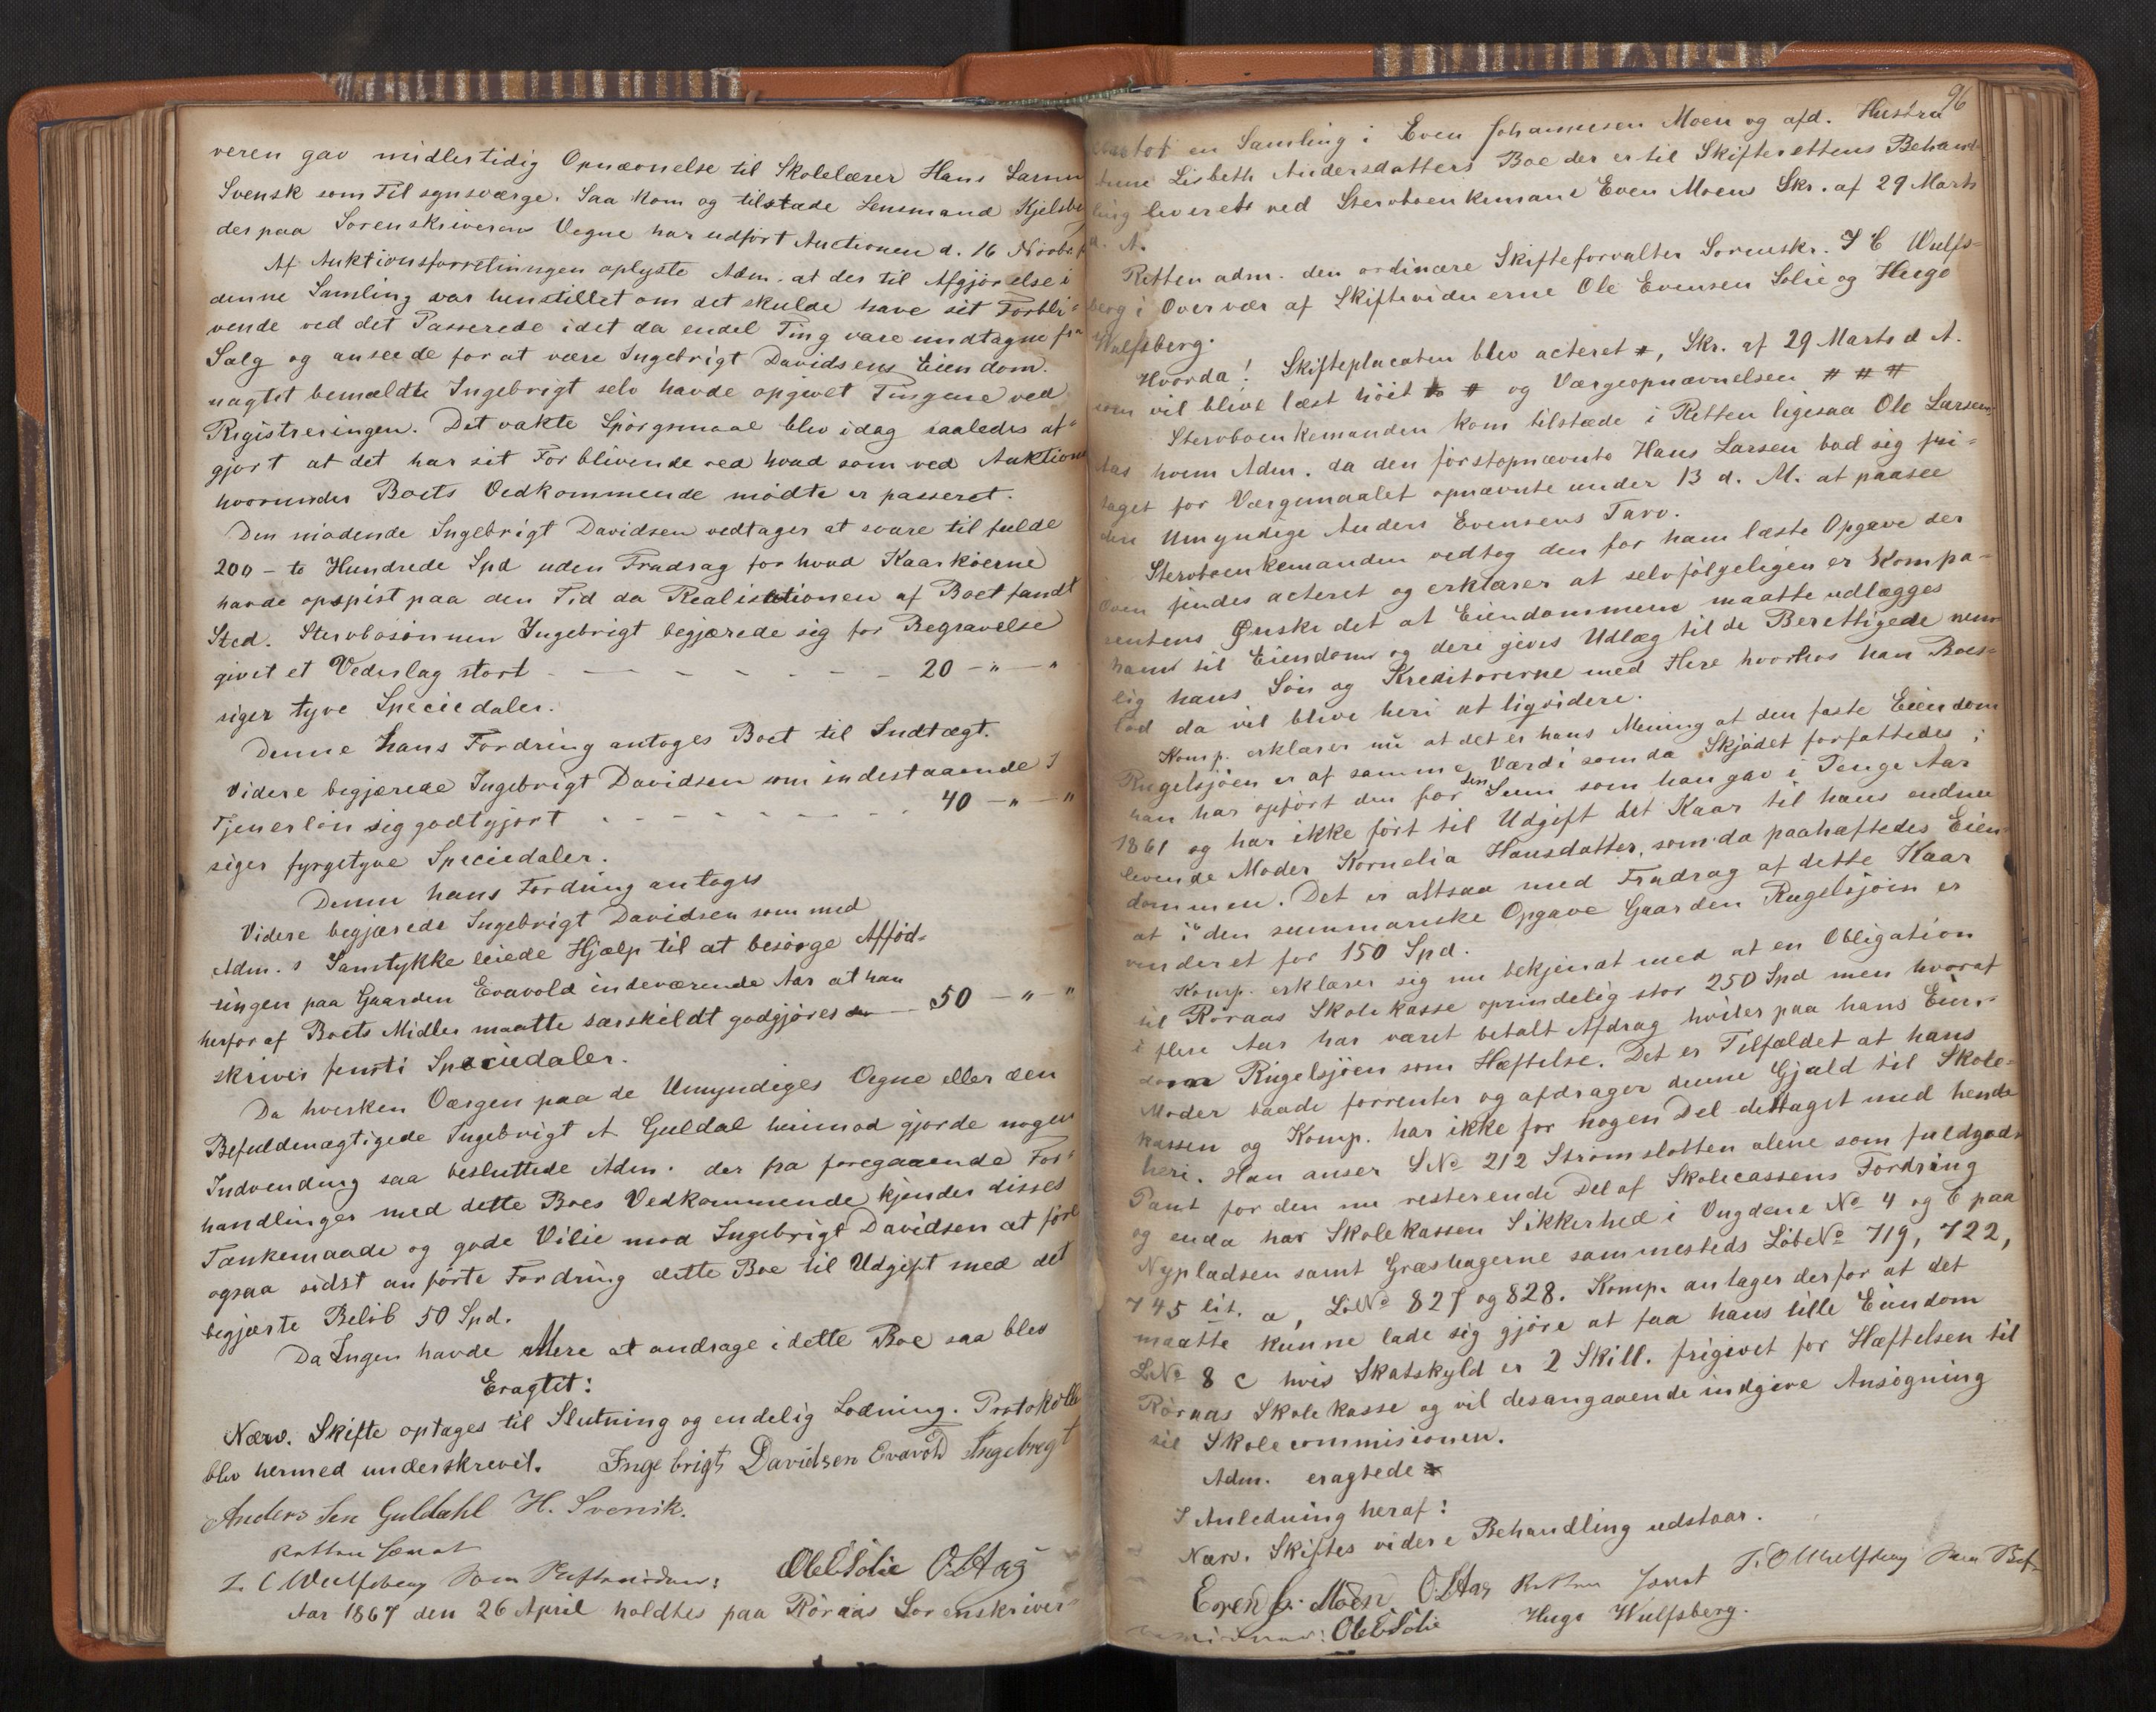 veren gav midlertidig Opnævnelse til Skolelærer Hans Larsen
Svensk som Tilsynsværge. Saa kom og tilstæde Lensmand Kjelsberg
der paa Sorenskriverens Vegne har udført Auctionen d. 16 Novbr
Af Auktionsforretningen oplyste Adm. at der til Afgjørelse i
denne Samling var henstillet om det skulde have sit Forbli-
vende ved det Passerede idet da endel Ting vare undtagne fra
Salg og anseede for at være Ingebrigt Davidsens Eiendom.
uagtet bemældte Ingebrigt selv havde opgivet Tingene ved
Registreringen. Det vakte Spørgsmaal blev idag saaledes af-
gjort at det har sit Forblivende ved hvad som ved Auktionen
hvorunder Boets Vedkommende mødte er passeret.
Den mødende Ingebrigt Davidsen vedtager at svare til fulde
200 - to Hundrede Spd uden Fradrag for hvad Kaarkøerne
havde opspist paa den Tid da Realisationen af Boet fandt
Sted. Stervbosønnen Ingebrigt begjærede sig for Begravelse
givet et Vederlag stort - - - - - - 20 - " - "
siger tyve Speciedaler.
Denne hans Fordring antoges Boet til Indtægt.
Videre begjærede Ingebrigt Davidsen som indestaaende
Tjenerløn sig godtgjort - - - - - - 40 - " - "
siger fyrgetyve Speciedaler.
Denne hans Fordring antoges
Videre begjærede Ingebrigt Davidsen som med
Adm.s Samtykke leiede Hjælp til at besørge Affød-
ingen paa Gaarden Evavold indeværende Aar at han
herfor af Boets Midler maatte særskildt godgjøres 50 - " - "
skriver femti Speciedaler.
Da hverken Værgen paa de Umyndiges Vegne eller den
Befuldmægtigede Ingebrigt A Guldal heimod gjorde nogen
Indvending saa besluttede Adm. der fra foregaaende For-
handlinger med dette Boes Vedkommende kjender disses
Tankemaade og gode Vilie mod Ingebrigt Davidsen at føre
ogsaa sidst anførte Fordring dette Boe til Udgift med det
begjærte Beløb 50 Spd.
Da Ingen havde Mere at andrage i dette Boe saa blev
Eragtet:
Nærv. Skifte optages til Slutning og endelig Lodning. Protokollen
blev hermed underskrevet. Ingebrigt Davidsen Evavold Ingebregt
Anders Sen Guldahl H. Svensk.
Retten hævet
I. C Wulfsberg Som Skiftevidner: OleESolie O.L.Aas
Aar 1867 den 26 April holdtes paa Røraas Sorenskriver-
96
kontor en Samling i Even Johannesen Moen og afd. Hustru
Lisbeth Andersdatters Boe der er til Skifterettens Behand-
ling leveret ved Stervboenkemand Even Moens Skr. af 29 Marts
d. A.
Retten adm. den ordinære Skifteforvalter Sorenskr. I C Wulfs-
berg i Overvær af Skiftevidnerne Ole Evensen Solie og Hugo
Wulfsberg.
Hvorda! Skifteplacaten blev acteret #, Skr. af 29 Marts d A.
som vil blive læst høit # og Værgeopnævnelsen # # #
Stervboenkemanden kom tilstæde i Retten ligesaa Ole Larsen
Aas hvem Adm. da den førstopnævnte Hans Larsen bad sig fri-
taget for Værgemaalet opnævnte under 13 d. M. at paasee
den Umyndige Anders Evensens Tarv.
Stervboenkemanden vedtog den for ham læste Opgave der
oven findes acteret og erklærer at selvfølgeligen er Kompa-
rentens Ønske det at Eiendommene maatte udlægges
ham til Eiendom og deri gives Udlæg til de Berettigede nem-
lig hans Søn og Kreditorerne med Flere hvorhos han Boes-
lod da vil blive heri at liqvidere.
Komp. erklærer nu at det er hans Mening at den faste Eiendom
Rugelsjøen er af samme Værdi som da Skjødet forfattedes i
han har opført den for den Sum som han gav i Penge Aar
1861 og har ikke ført til Udgift det Kaar til hans endnu
levende Moder Kornelia Hansdatter, som da paahæftedes Eien-
dommen. Det er altsaa med Fradrag af dette Kaar
at i den summariske Opgave Gaarden Rugelsjøen er
vurderet for 150 Spd.
Komp. erklærer sig nu bekjendt med at en Obligation
til Røraas Skolekasse oprindelig stor 250 Spd men hvoraf
i flere Aar har været betalt Afdrag hviler paa hans Eien-
dom Rugelsjøen som Hæftelse. Det er Tilfældet at hans
Moder baade forrenter og afdrager denne Gjæld til Skole-
kassen og Komp. har ikke for nogen Del deltaget med hende
heri. Han anser LNo 212 Strømslotten alene som fuldgodt
Pant for den nu resterende Del af Skolecassens Fordring
og enda har Skolekassen Sikkerhed i Vugdene No 4 og 6 paa
Nypladsen samt Græshagerne sammesteds LøbeNo 719, 722,
745 lit. a, LøNo 827 og 828. Komp. antager derfor at det
maatte kunne lade sig gjøre at faa hans lille Eiendom
LNo 8 c hvis Skatskyld er 2 Skill. frigivet for Hæftelsen til
Røraas Skolekasse og vil desangaaende indgive Ansøgning
til Skolecommisionen.
Adm. eragtede
I Anledning heraf:
Nærv. Skiftes videre Behandling udstaar.
Even J. Moen. O.L.Aas Retten hævet I. C Wulfsberg Som Skif-
tevidner: OleESolie Hugo Wulfsberg.